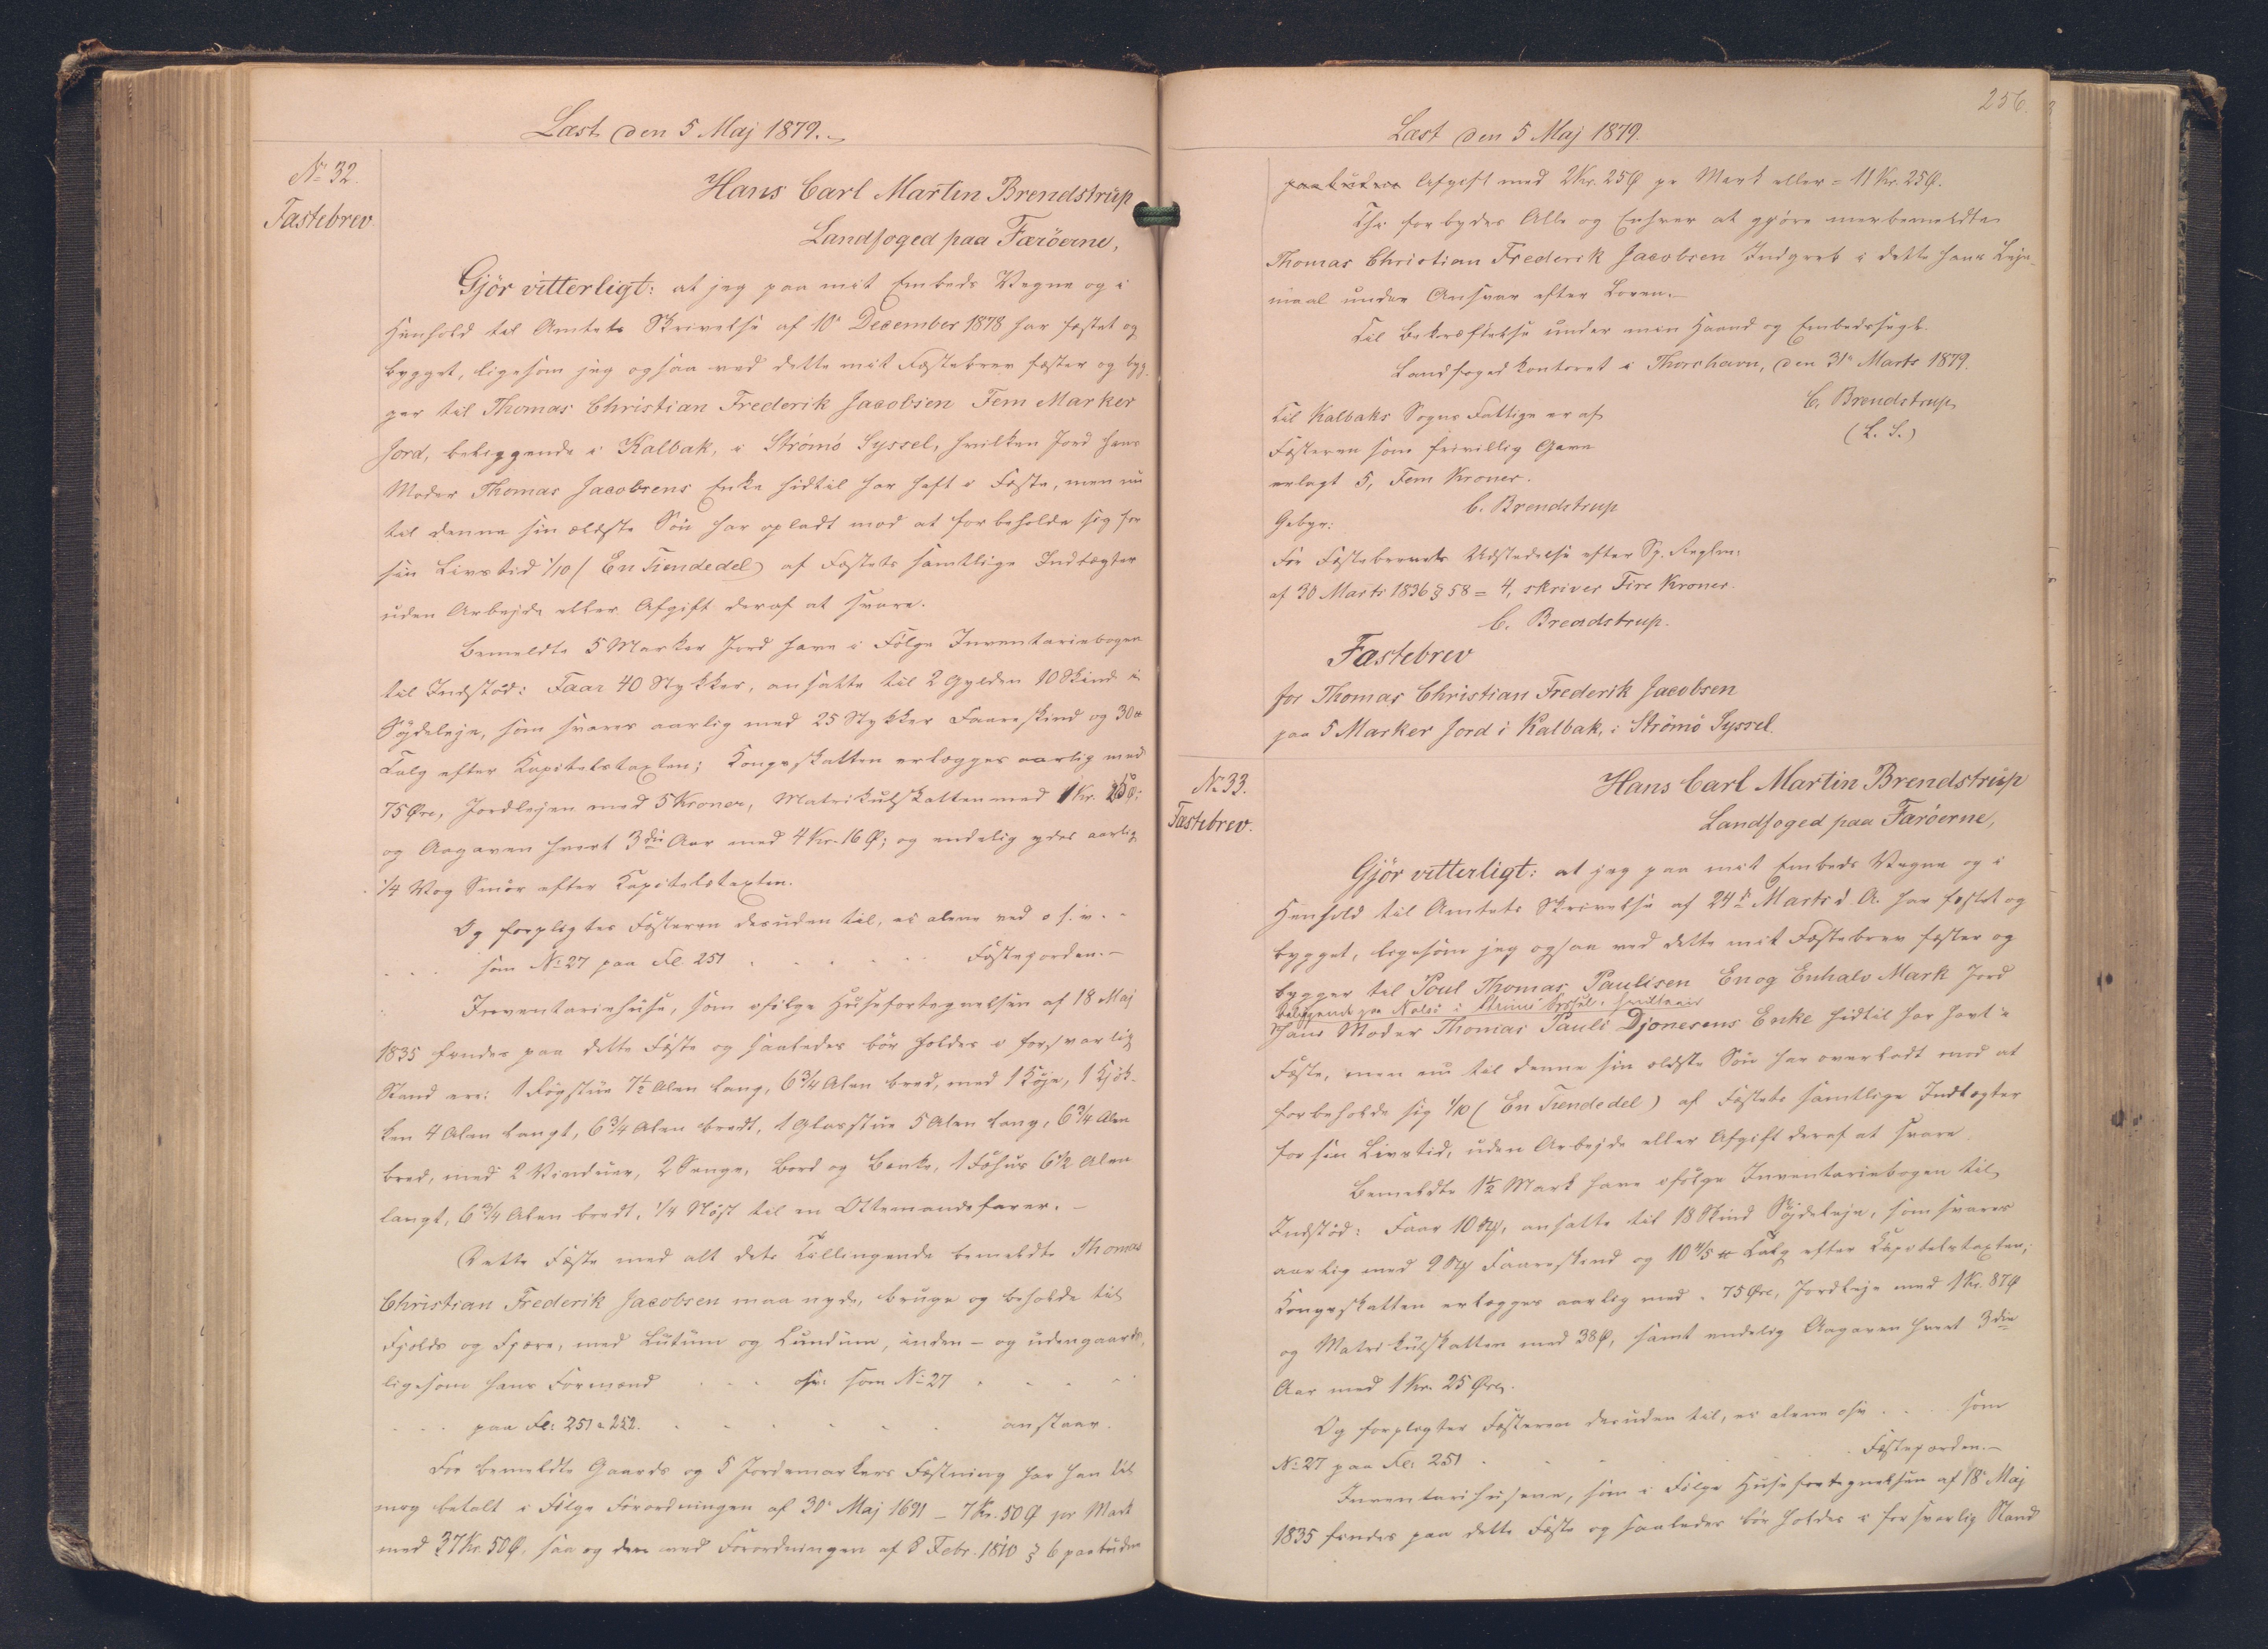 Læst den 5 Maj 1879.
No 32.
Fæstebrev
Hans Carl Martin Brendstrup
Landfoged paa Færöerne,
Gjör vitterligt: at jeg paa mit Embeds Vegne og i
Henhold til Amtets Skrivelse af 10de December 1878 har fæstet og
bygget, ligesom jeg ogsaa ved dette mit Fæstebrev fæster og byg-
ger til Thomas Christian Frederik Jacobsen Fem Marker
Jord, beliggende i Kalbak, i Strömö Syssel, hvilken Jord hans
Moder Thomas Jacobsens Enke hidtil har haft i Fæste, men nu
til denne sin ældste Sön har opladt mod at forbeholde sig for
sin Livstid 1/10 (En Tiendedel) af Fæstets samtlige Indtægter
uden Arbejde eller Afgift deraf at svare.
Bemeldte 5 Marker Jord have i Fölge Inventariebogen
til Indstöd: Faar 40 Stykker, ansatte til 2 Gylden 10 Skind i
Söjdeleje, som svares aarlig med 25 Stykker Faareskind og 30 ℔
Talg efter Kapitelstaxten; Kongeskatten erlægges aarlig med
75 Øre, Jordlejen med 5 Kroner, Matrikulskatten med 1 Kr. 25 Ø;
og Aagaven hvert 3die Aar med 4 Kr. 16 Ø; og endelig ydes aarlig
1/4 Vog Smör efter Kapitelstaxten.
Og forpligtes Fæsteren desuden til, ei alene ved o. s. v. - -
- - - som No 27 paa Fl. 251 - - - - - - Fæstejorden.-
Inventariehuse, som ifölge Husefortegnelsen af 18 Maj
1835 findes paa dette Fæste og saaledes bör holdes i forsvarlig
Stand ere: 1 Rögstue 7 1/2 Alen lang, 6 3/4 Alen bred, med 1 Köje, 1 Kjök-
ken 4 Alen langt, 6 3/4 Alen bredt, 1 Glasstue 5 Alen lang, 6 3/4 Alen
bred, med 2 Vinduer, 2 Senge, Bord og Bænke, 1 Fæhus 6 1/2 Alen
langt, 6 3/4 Alen bredt, 1/4 Nöst til en Ottemandsfarer.-
Dette Fæste med alt dets Tilliggende bemeldte Thomas
Christian Frederik Jacobsen maa nyde, bruge og beholde til
Fjelds og Fjære, med Lutum og Lundum, inden- og udengaards,
ligesom hans Formænd - - - osv. som No 27 - - - -
- - - paa Fl: 251 a 252. - - - - - - anstaar.
For bemeldte Gaards og 5 Jordemarkers Fæstning har han til
mig betalt i Fölge Forordningen af 30de Maj 1691 - 7 Kr. 50 Ø pr Mark
med 37 Kr. 50 Ø, saa og den ved Forordningen af 8 Febr. 1810 § 6 paabudne
256.
Læst den 5 Maj 1879.
paabudne Afgift med 2 Kr. 25 Ø pr Mark eller = 11 Kr. 25 Ø.
Thi forbydes Alle og Enhver at gjöre merbemeldte
Thomas Christian Frederik Jacobsen Indgreb i dette hans Leje-
maal under Ansvar efter Loven.-
Til Bekræftelse under min Haand og Embedssegl.
Landfogedkontoret i Thorshavn, den 31te Marts 1879.
C. Brendstrup
(L. S.)
Til Kalbaks Sogns Fattige er af
Fæsteren som frivillig Gave
erlagt 5, Fem Kroner.
C. Brendstrup
Gebyr:
For Fæstebrevets Udstedelse efter Sp. Reglm:
af 30 Marts 1836 § 58 = 4, skriver Fire Kroner.
C. Brendstrup.
Fæstebrev
for Thomas Christian Frederik Jacobsen
paa 5 Marker Jord i Kalbak, i Strömö Syssel.
No 33.
Fæstebrev.
Hans Carl Martin Brendstrup
Landfoged paa Færöerne,
Gjör vitterligt: at jeg paa mit Embeds Vegne og i
Henhold til Amtets Skrivelse af 24de Marts d. A. har fæstet og
bygget, ligesom jeg ogsaa ved dette mit Fæstebrev fæster og
bygger til Poul Thomas Paulisen En og Enhalv Mark Jord
beliggende paa Nolsö i Strömö Syssel, hvilken
Hans Moder Thomas Pauli Djonesens Enke hidtil har havt i
Fæste, men nu til denne sin ældste Sön har overladt mod at
forbeholde sig 1/10 (En Tiendedel) af Fæstets samtlige Indtægter
for sin Livstid, uden Arbejde eller Afgift deraf at svare.
Bemeldte 1 1/2 Mark have ifölge Inventariebogen til
Indstöd: Faar 10 Stk, ansatte til 18 Skind Söjdeleje, som svares
aarlig med 9 Stk Faareskind og 10 4/5 ℔ Talg efter Kapitelstaxten;
Kongeskatten erlægges aarlig med - 75 Øre, Jordleje med 1 Kr. 87 Ø
og Matrikulskatten med 38 Ø, samt endelig Aagaven hvert 3die
Aar med 1 Kr. 25 Øre.
Og forpligtes Fæsteren desuden til, ei alene osv. - - - som
No 27 paa Fl: 251 - - - - Fæstejorden.-
Inventariehusene, som i Fölge Husefortegnelsen af 18de Maj
1835 findes paa dette Fæste og saaledes bör holdes i forsvarlig Stand